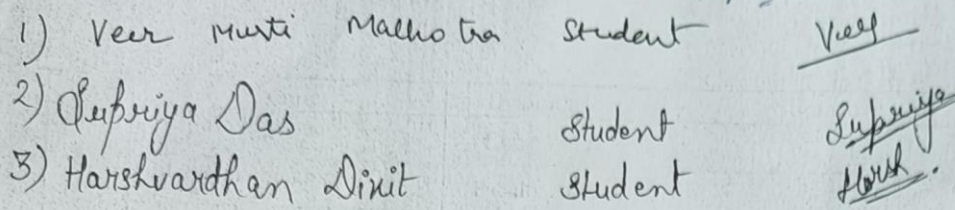 1) Veer Murti Malhotra Student Veer
2) Supriya Das Student Supriya
3) Harshvardhan Dixit Student Harsh.